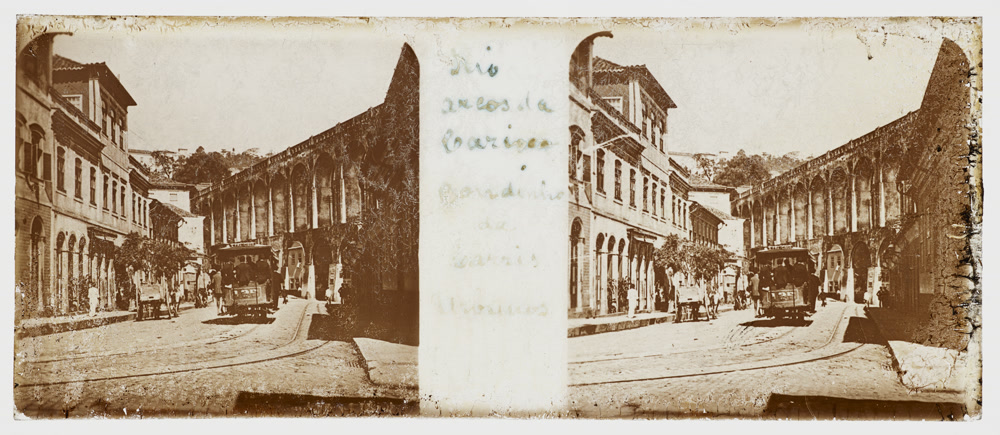 Rio
arcos da
Carioca
bondinho
de
carris
Urbanos